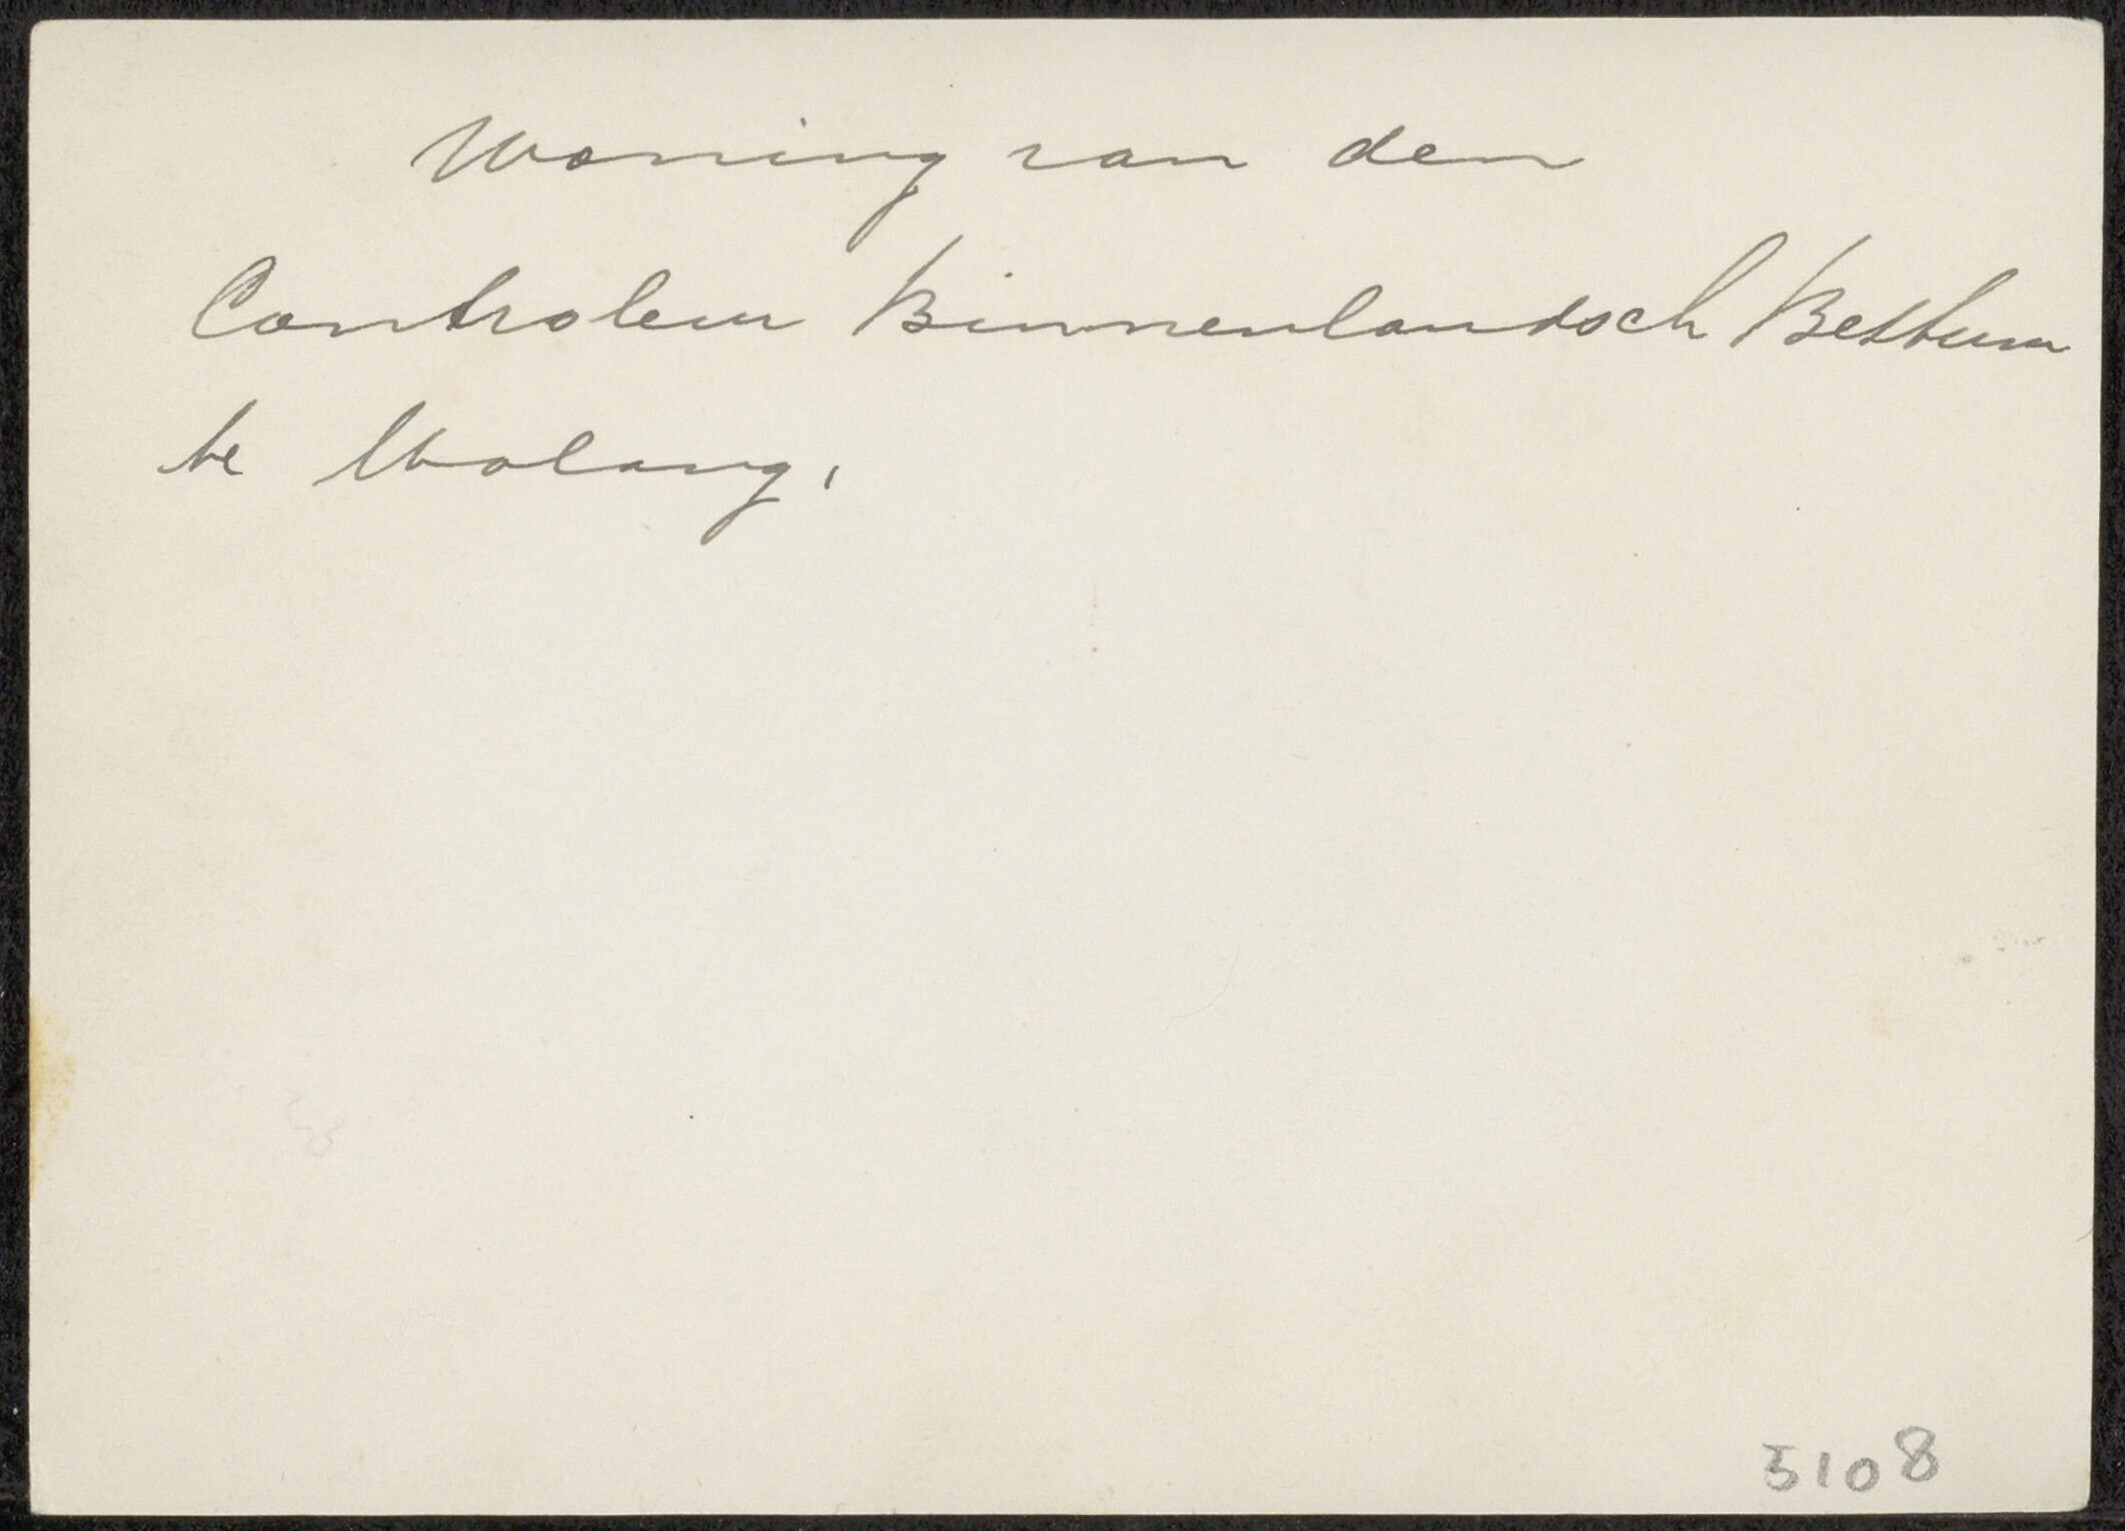 Woning van den
Controleur Binnenlandsch Bestuur
te
5108